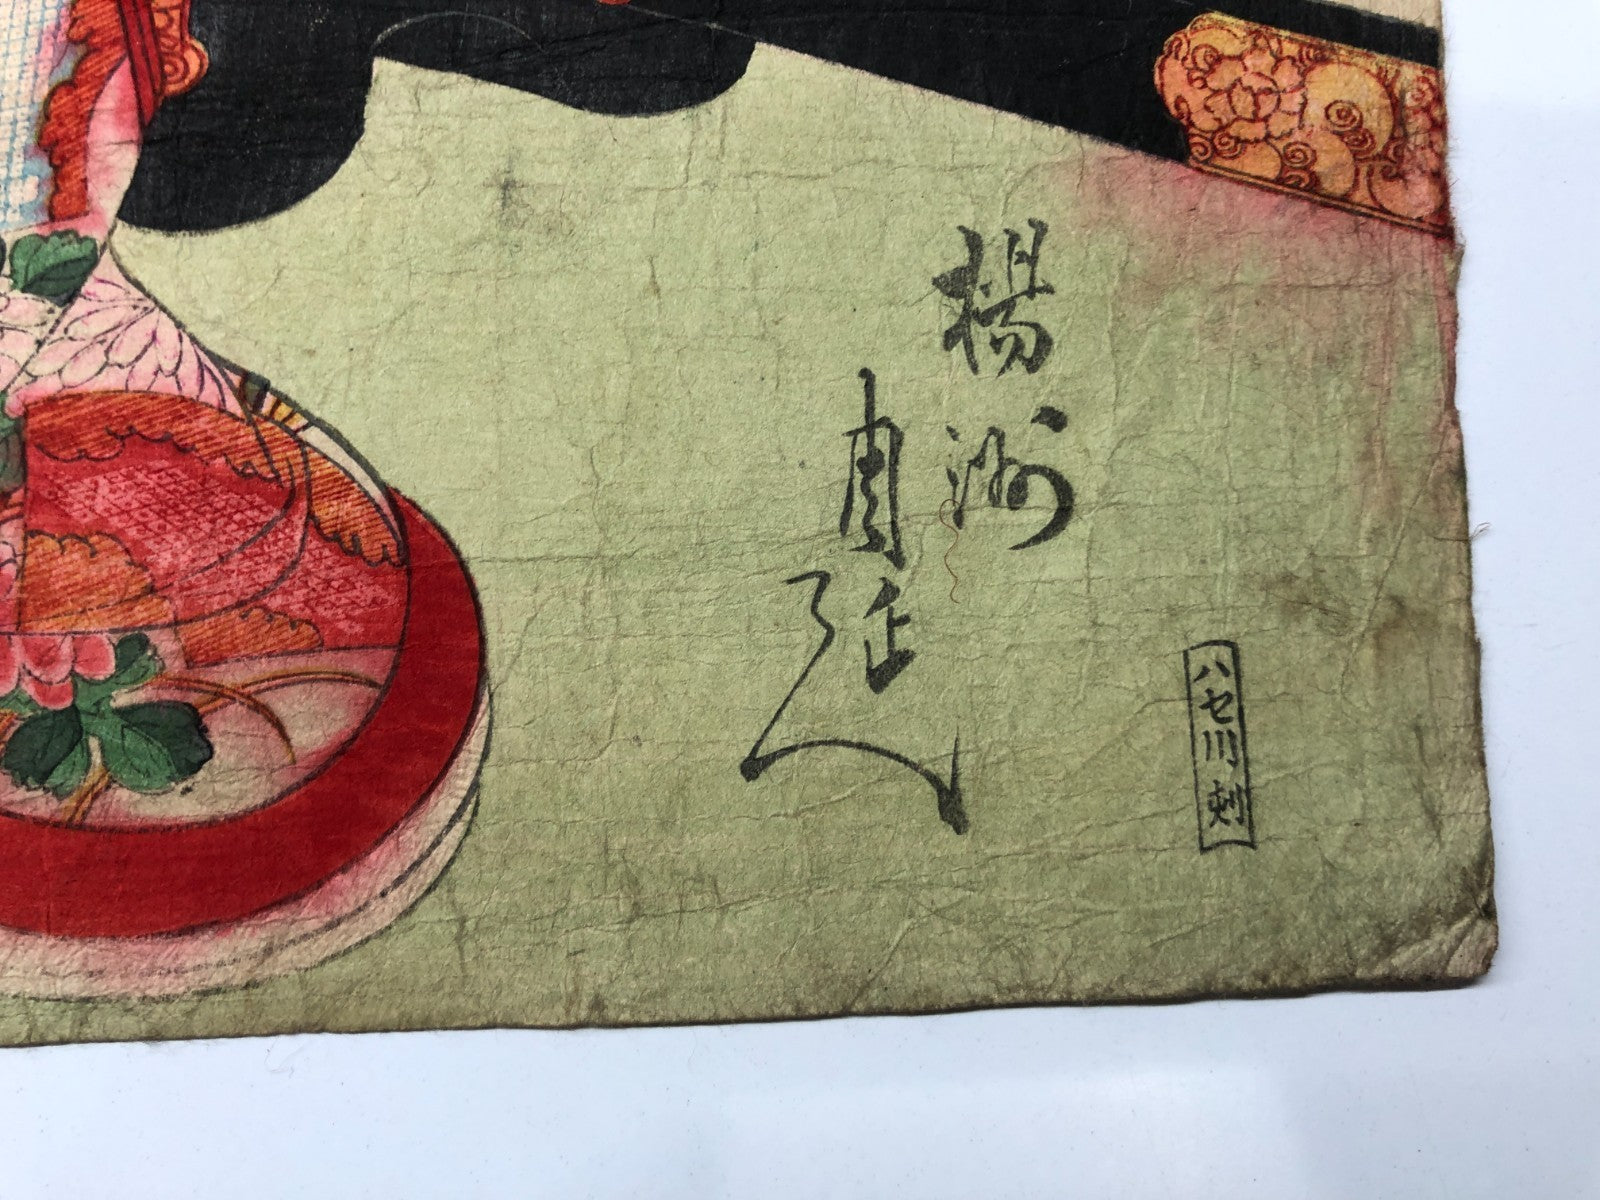 楊洲
周延
ハセ川刻